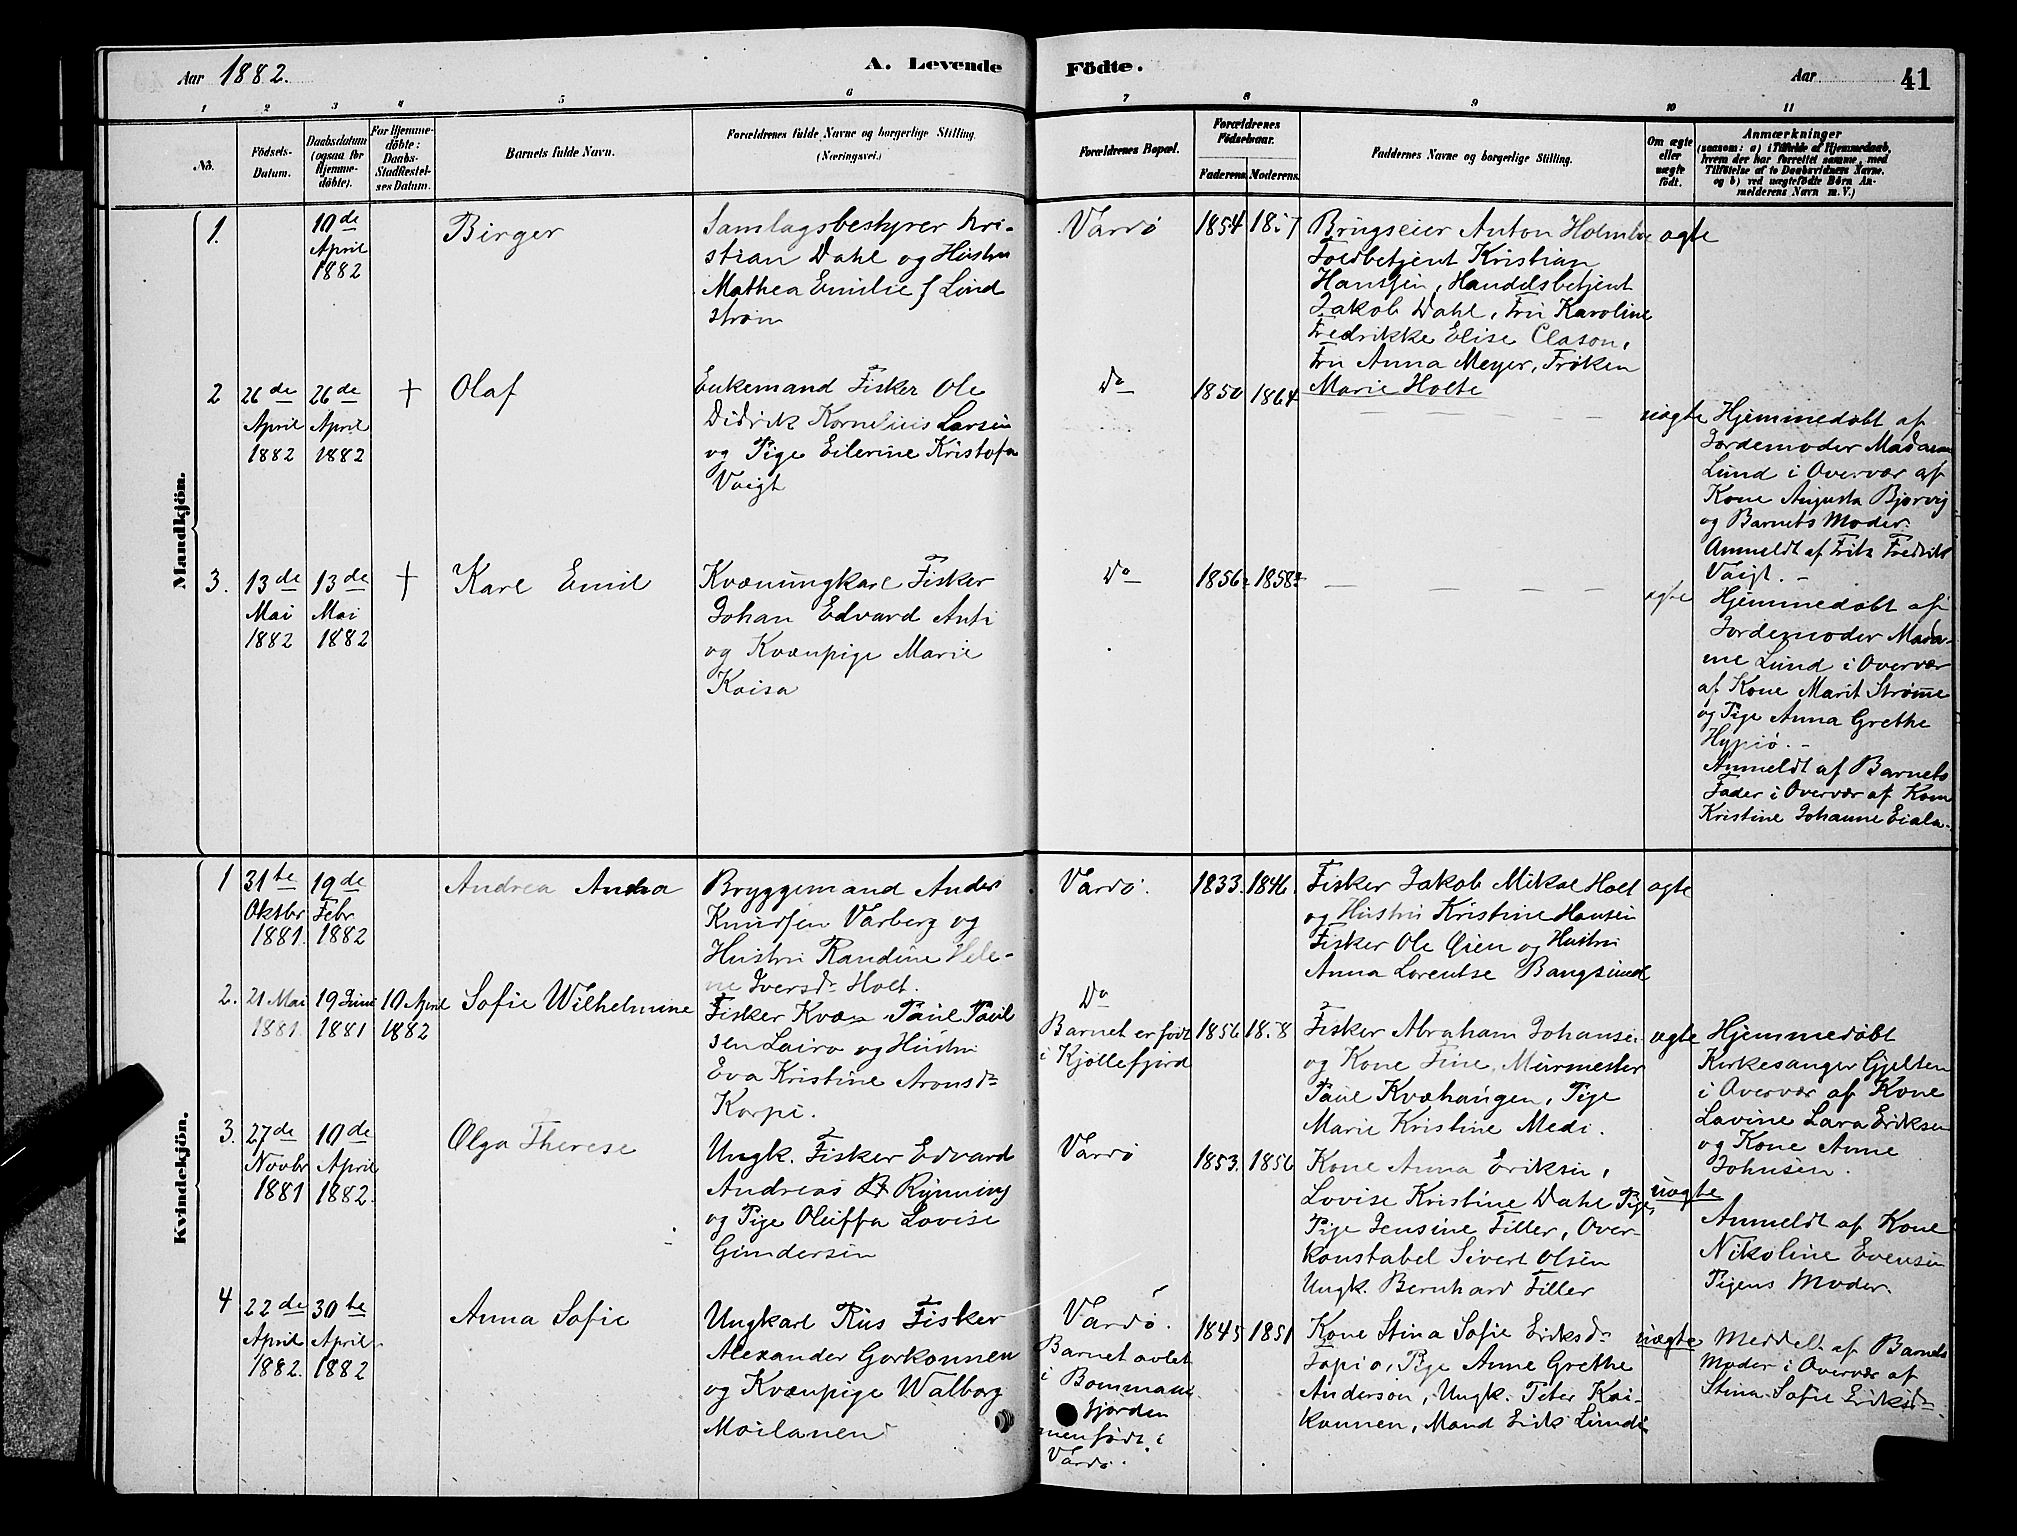 Aar 1882.
A. Levende Födte.
Aar
41
1 2 3 4 5 6 7 8 9 10 11
No.
Födsels-
Datum.
Daabsdatum
(ogsaa for
Hjemme-
döbte).
For Hjemme-
döbte:
Daabs-
Stadfæstel-
ses Datum.
Barnets fulde Navn.
Forældrenes fulde Navne og borgerlige Stilling.
(Næringsvei.)
Forældrenes Bopæl.
Forældrenes
Födselsaar.
Faderens.
Moderens.
Faddernes Navne og borgerlige Stilling.
Om ægte
eller
uægte
födt.
Anmærkninger
(saasom: a) i Tilfælde af Hjemmedaab,
hvem der har forrettet samme, med
Tilföielse af to Daabsvidners Navne.
og b) ved uægtefödte Börn An-
melderens Navn m. V.)
Mandkjön.
1.
10 de
April
1882
Birger
Samlagsbestyrer Kri-
stian Dahl og Hustru
Mathea Emilie f Lind
strøm
Vardø
1854
Brugseier Anton Holmboe
Toldbetjent Kristian
Hanssen, Handelsbetjent
Jakob Dahl, Fru Karoline
Fredrikke Elise Clason,
Fru Anna Meyer, Frøken
Marie Holte
ægte
2
26 de
April
1882
26 de
April
1882
+
Olaf
Enkemand Fisker Ole
Didrik Kornelius Larsen
og Pige Eilerine Kristofa
Voigt
Do
1850
1864
uægte
Hjemmedøbt af
Jordemoder Madam
Lund i Overvær af
Kone Augusta Bjørvig
og Barnets Moder.
Anmeldt af Fritz Fredrik
Voigt. -
3.
13 de
Mai
1882
13 de
Mai
1882
+
Karl Emil
Kvænungkarl Fisker
Johan Edvard Anti
og Kvænpige Marie
Kaisa
Do
1856
1858
ægte
Hjemmedøbt af
Jordemoder Mada-
me Lund i Overvær
af Kone Marit Strømme
og Pige Anna Grethe
Hypiø. -
Anmeldt af Barnets
Fader i Overvær af Kone
Kristine Johanne Eiala.
Kvindekjön.
1
31 te
Oktbr
1881.
19 de
Febr
1882
Andrea Andrea
Bryggemand Anders
Knudsen Varberg og
Hustru Randine Hele-
ne Iversdr Holt.
Vardø.
1833.
1846.
Fisker Jakob Mikal Holt
og Hustru Kristine Hansen
Fisker Ole Qien og Hustru
Anna Lorentse Bangsund
ægte
2.
21 Mai
1881.
19 Juni
1881
10 April
1882
Sofie Wilhelmine
Fisker Kvæn Paul Paul
sen Lairo og Hustru
Eva Kristine Aronsdr
Korpi.
Do
Barnet er født
i Kjøllefjord
1856
Fisker Abraham Johansen
og Kone Fine, Murmester
Paul Kvæhaugen, Pige
Marie Kristine Medi.
ægte
Hjemmedøbt
Kirkesanger Gjelten
i Overvær af Kone
Lavine Lara Eriksen
og Kone Anne
Johnsen.
3.
27 de
Novbr
1881
10 de
April
1882.
Olga Therese
Ungk. Fisker Edvard
Andreas Rynning
og Pige Oluffa Lovise
Gundersen
Vardø
1853.
1856
Kone Anna Eriksen,
Lovise Kristine Dahl Pige,
Pige Jensine Filler, Over-
konstabel Sivert Olsen
Ungk. Bernhard Filler
uægte
Anmeldt af Kone
Nikoline Evensen
Pigens Moder.
4
22 de
April
1882.
30 te
April
1882
Anna Sofie
Ungkarl Rus Fisker
Alexander Gorkonnen
og Kvænpige Walborg
Moilanen
Vardø.
Barnet avlet
i Bommans
fjorden
men født i
Vardø.
1845
1851
Kone Stina Sofie Eriksdr
Tapio, Pige Anne Grethe
Anderson, Ungk. Peter Kai-
konnen, Mand Erik Lunde
uægte
Meddelt af Barnets
Moder i Overvær af
Stina Sofie Eriksdr